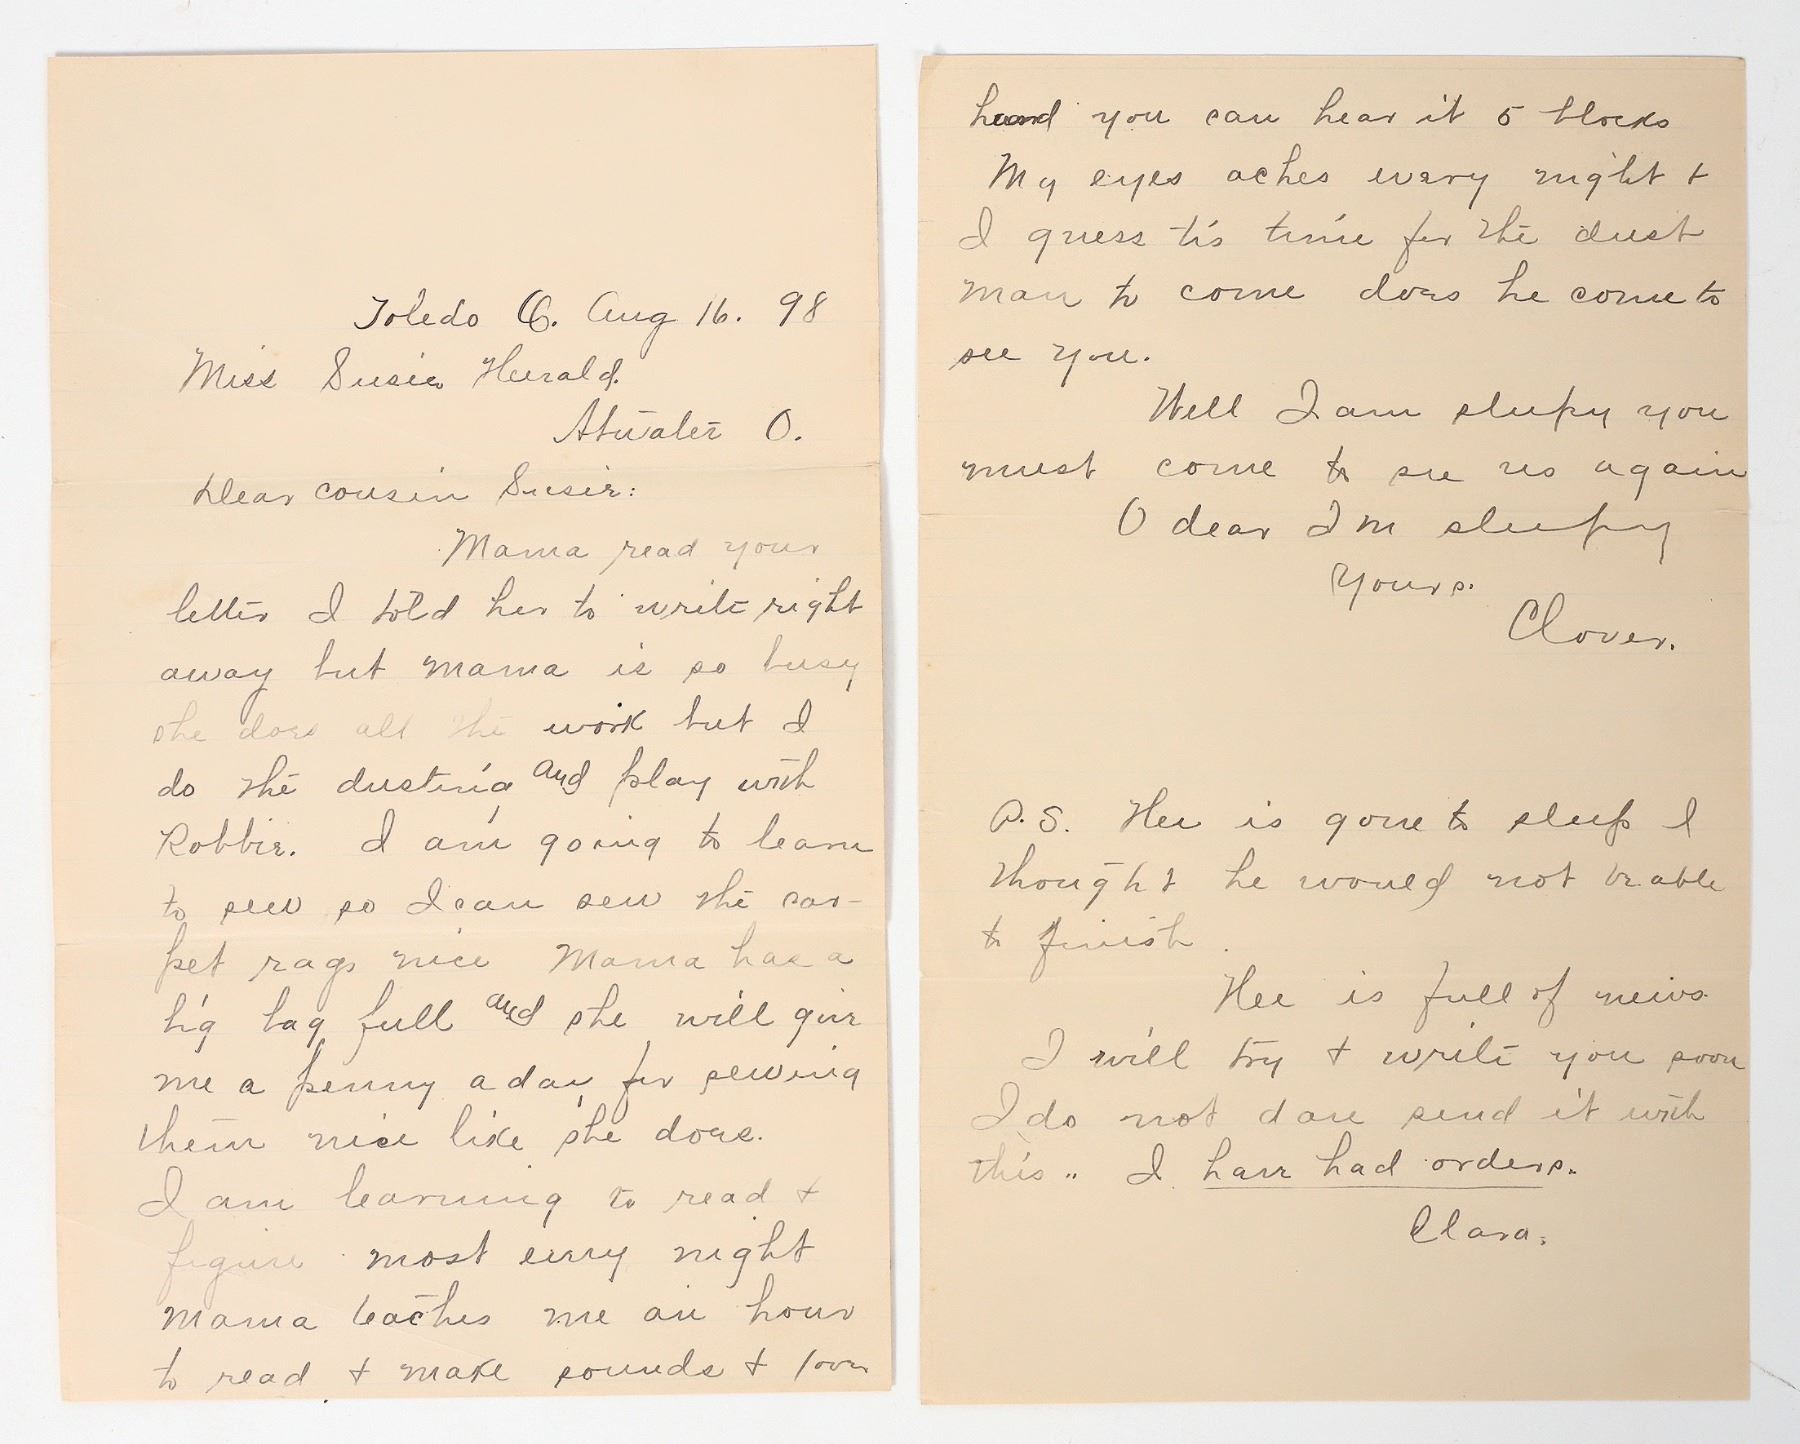 Toledo O. Aug 16. 98
Miss Susie Herald.
Atwater O.
Dear cousin Susie:
Mama read your
letter I told her to write right
away but mama is so busy
she does all the work but I
do the dusting and play with
Robbie. I am going to learn
to sew so I can sew the car-
pet rags nice Mama has a
big bag full and she will give
me a penny a day for sewing
them nice like she does.
I am learning to read +
figure most every night
mama teaches me an hour
to read + make sounds +
you can hear it 5 blocks
My eyes aches every night +
I guess tis time for the dust
man to come does he come to
see you.
Well I am sleepy you
must come to see us again
O dear I m sleepy
Yours.
Clover.
P.S. Hee is gone to sleep I
thought he would not be able
to finish.
Hee is full of news
I will try + write you soon
I do not dare send it with
this.. I have had orders.
Clara.